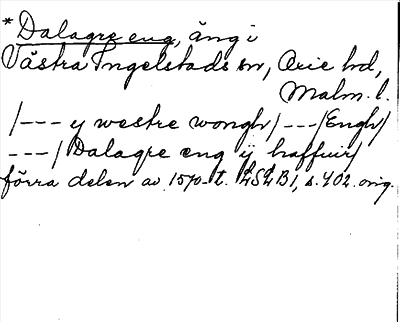 * Dalagre eng, äng i
Västra Ingelstads sn, Oxie hd,
Malm. l.
/--- y westre wongh/ ---/Engh/
---/ Dalagre eng ij haffuir/
förra delen av 1570-t. LSLB1, s. 402. orig.